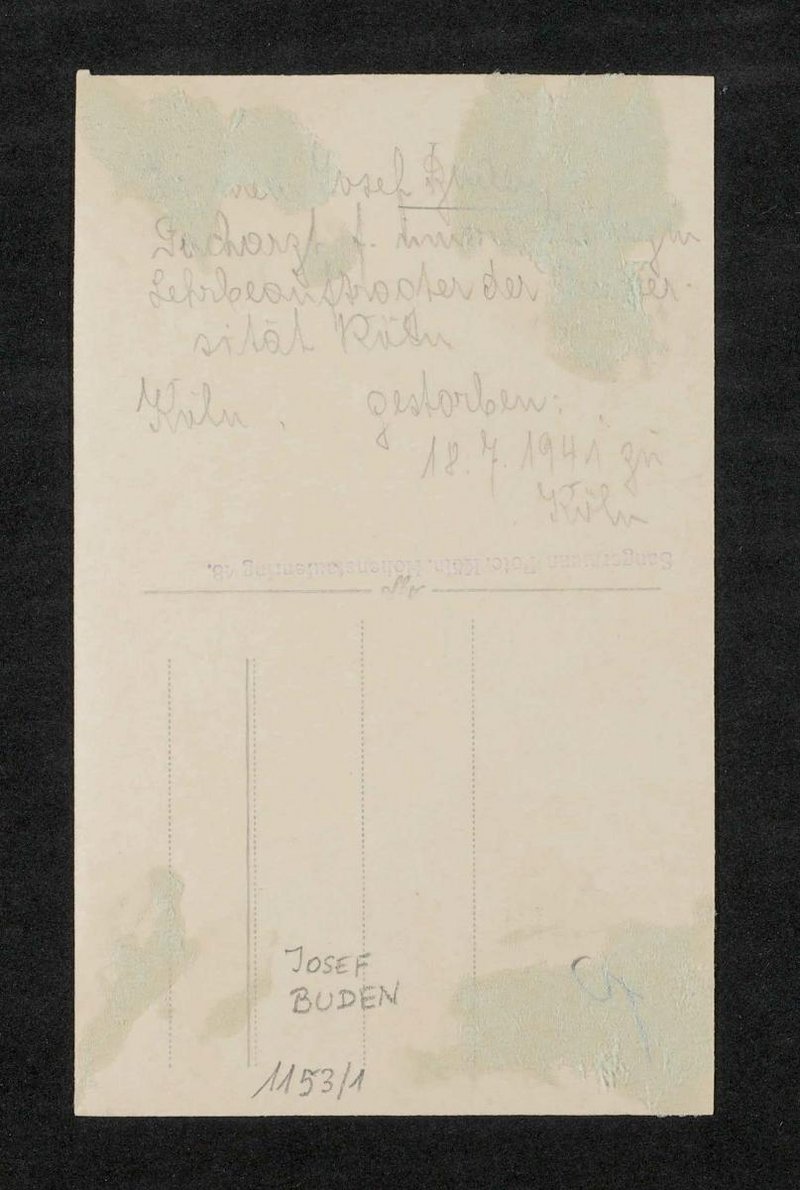 Josef
Facharzt f.
Lehrbeauftragter der
sität Köln
Köln. gestorben:
18.7.1941 zu
Köln
Sangermann Foto Köln, Hohenstaufenring 48.
JOSEF
BUDEN
1153/1